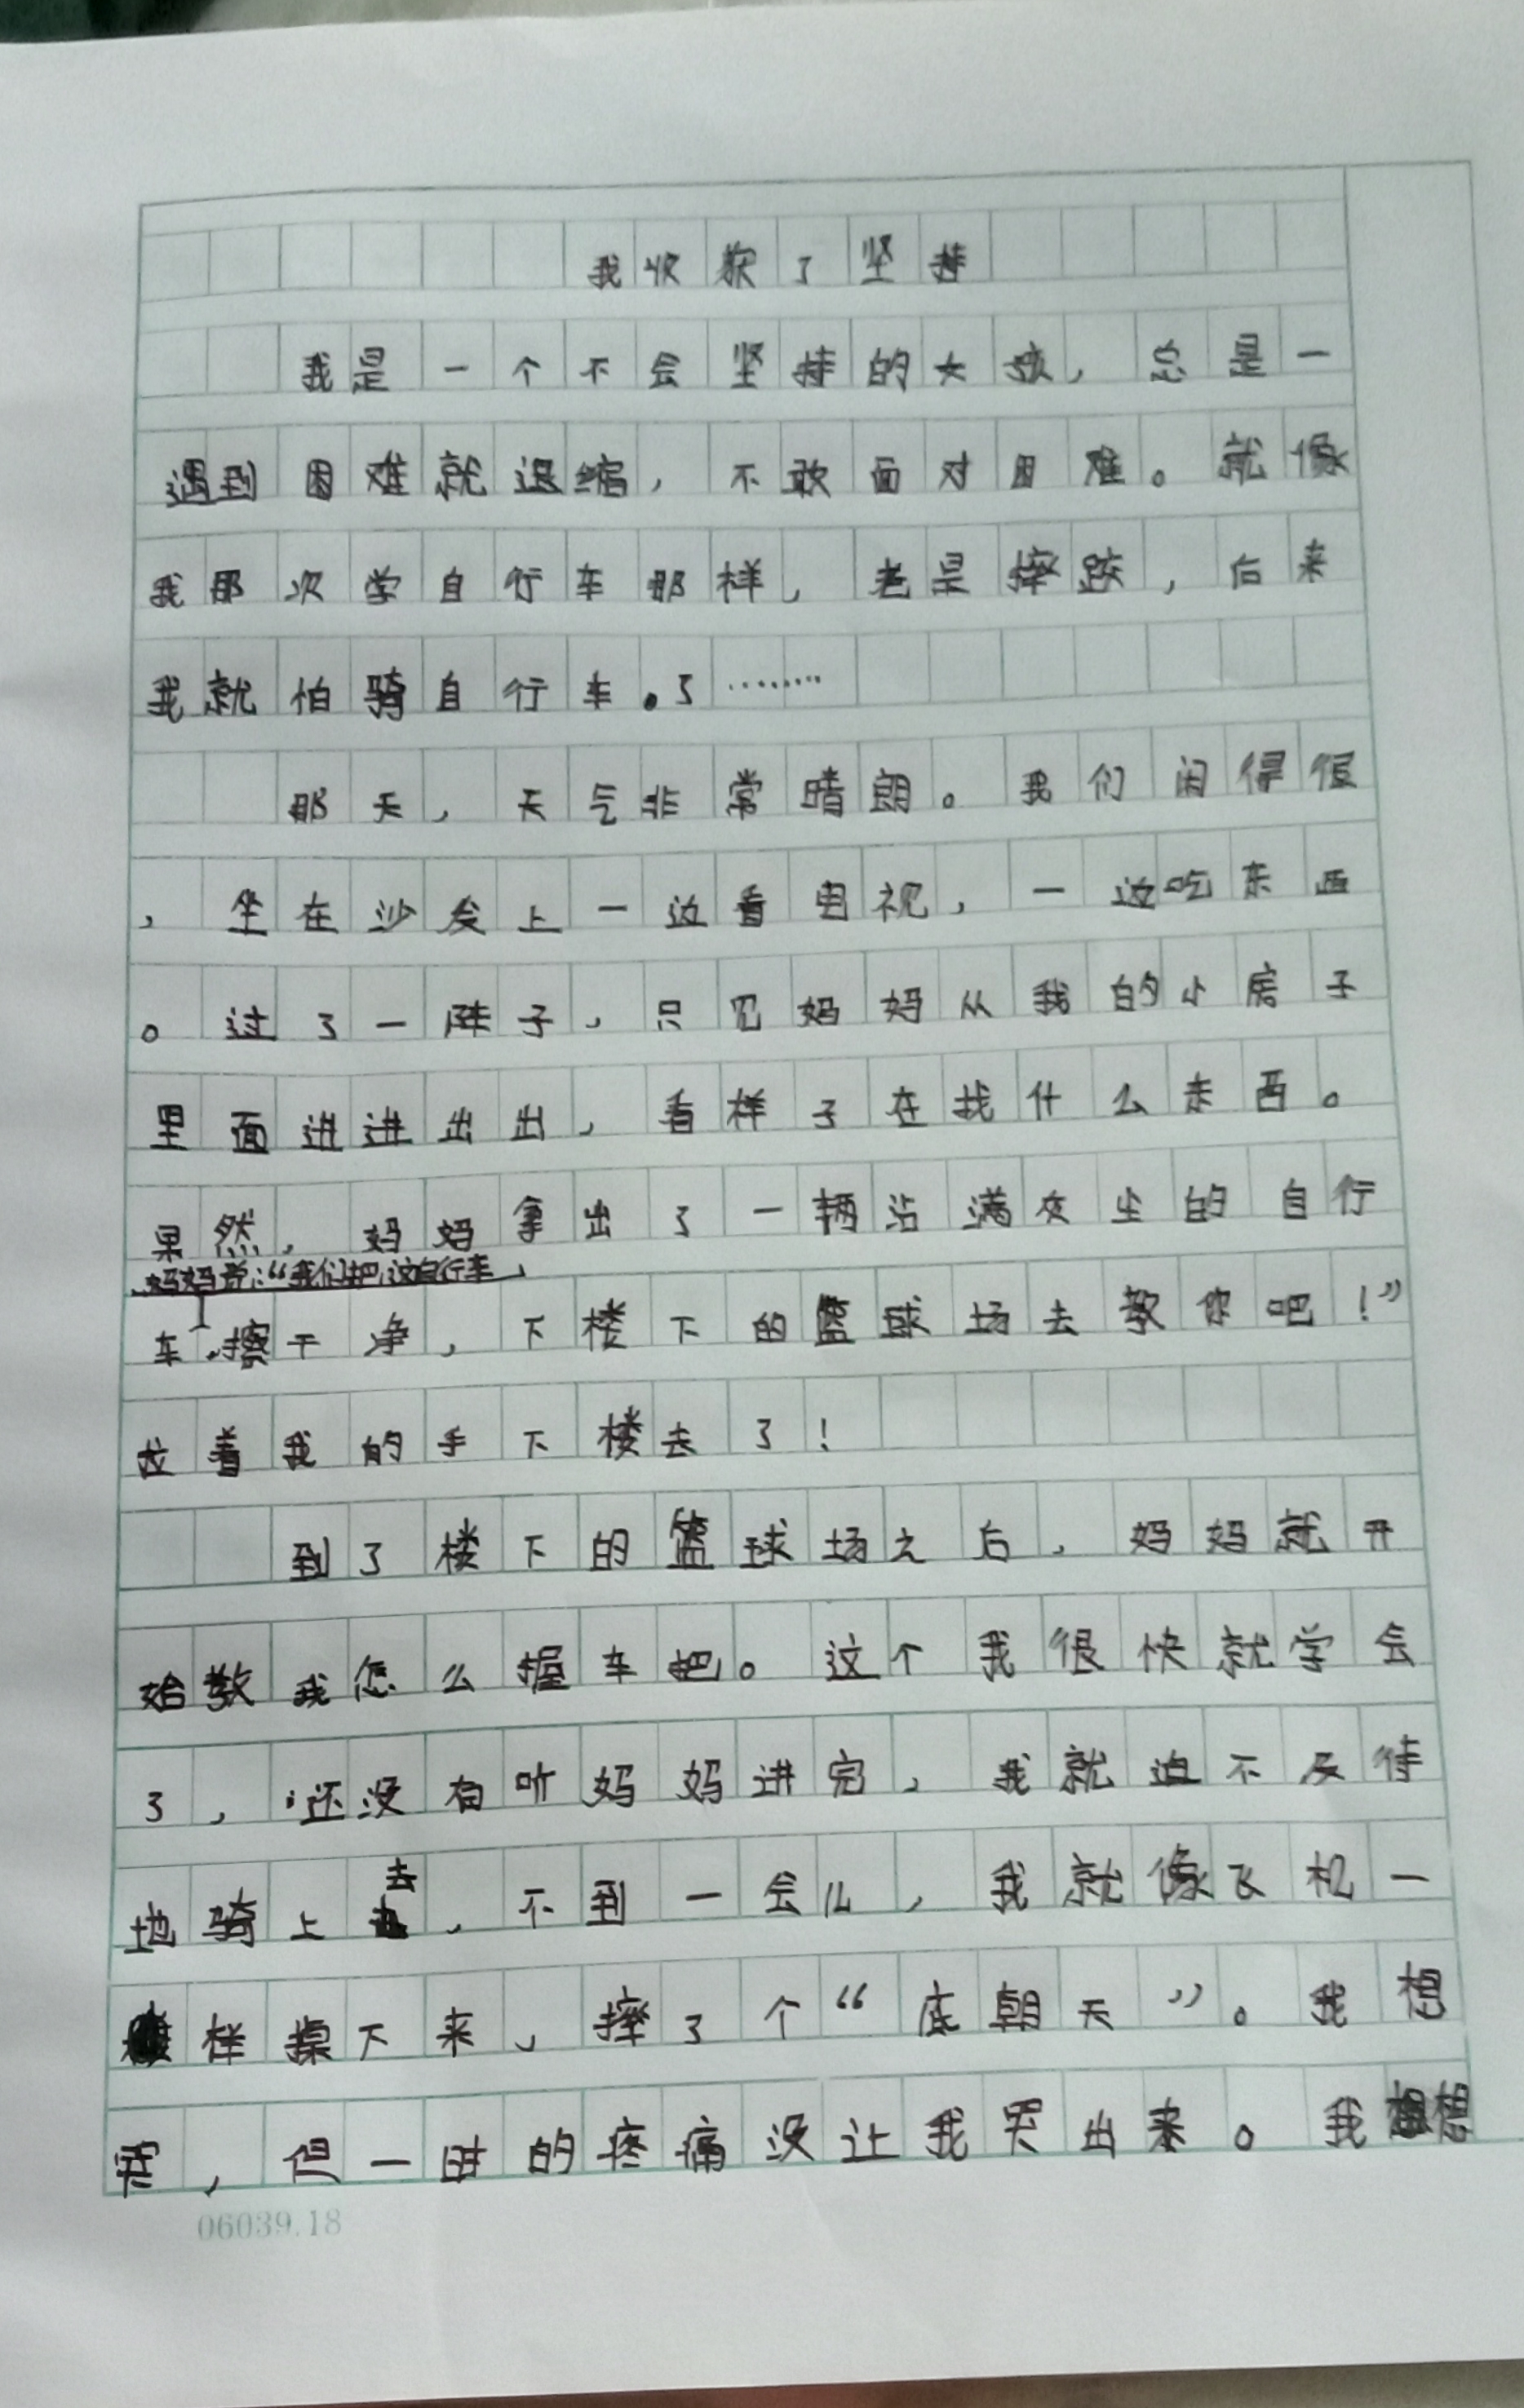 我收获了坚持
我是一个不会坚持的女孩，总是一
遇到困难就退缩，不敢面对困难。就像
我那次学自行车那样，老是摔跤，后来
我就怕骑自行车。了……
那天，天气非常晴朗。我们闲得很
，坐在沙发上一边看电视，一边吃东西
。过了一阵子，只见妈妈从我的小房子
里面进进出出，看样子在找什么东西。
果然，妈妈拿出了一辆沾满灰尘的自行
妈妈说：“我们把这自行车
车。擦干净，下楼下的篮球场去教你吧！”
拉着我的手下楼去了！
到了楼下的篮球场之后，妈妈就开
始教我怎么握车把。这个我很快就学会
了，还没有听妈妈讲完，我就迫不及待
地骑上去，不到一会儿，我就像飞机一
样摔下来，摔了个“底朝天”。我想
哭，但一时的疼痛没让我哭出来。我想
06039.18